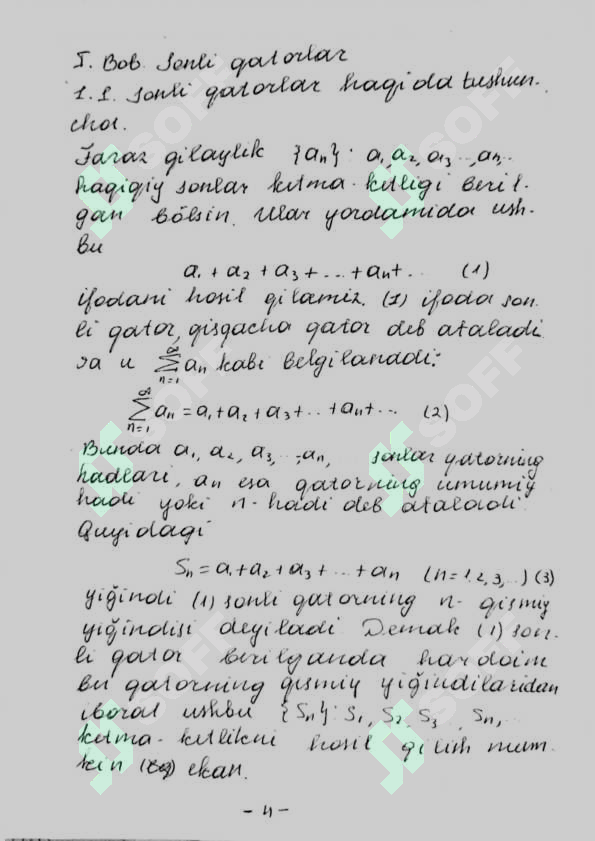 I. Bob. Sonli qatorlar
1.1. Sonli qatorlar haqida tushun-
cha.
Faraz qilaylik {an}: a1, a2, a3..., an...
haqiqiy sonlar ketma-ketligi beril-
gan bölsin. Ular yordamida ush-
bu
a1 + a2 + a3 + ... + an + .. (1)
ifodani hosil qilamiz. (1) ifoda son-
li qator, qisqacha qator deb ataladi
va u ∞∑n=1 an kabi belgilanadi:
∞∑n=1 an = a1 + a2 + a3 + ... + an + ... (2)
Bunda a1, a2, a3, ..., an, sonlar qatorning
hadlari, an esa qatorning umumiy
hadi yoki n-hadi deb ataladi.
Quyidagi
Sn = a1 + a2 + a3 + ... + an (n=1,2,3,...) (3)
yiğindi (1) sonli qatorning n-qismiy
yiğindisi deyiladi. Demak (1) son-
li qator berilganda hardoim
bu qatorning qismiy yiğindilaridan
iborat ushbu {Sn}: S1, S2, S3, Sn,
ketma-ketlikni hosil qilish mum-
kin ekan.
- 4 -
SOFF
SOFF
SOFF
SOFF
SOFF
SOFF